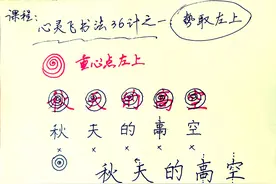 课程：心灵飞书法36计之一 势取左上
重心点左上
秋天的高空
秋天的高空
× × × × ×
秋天的高空